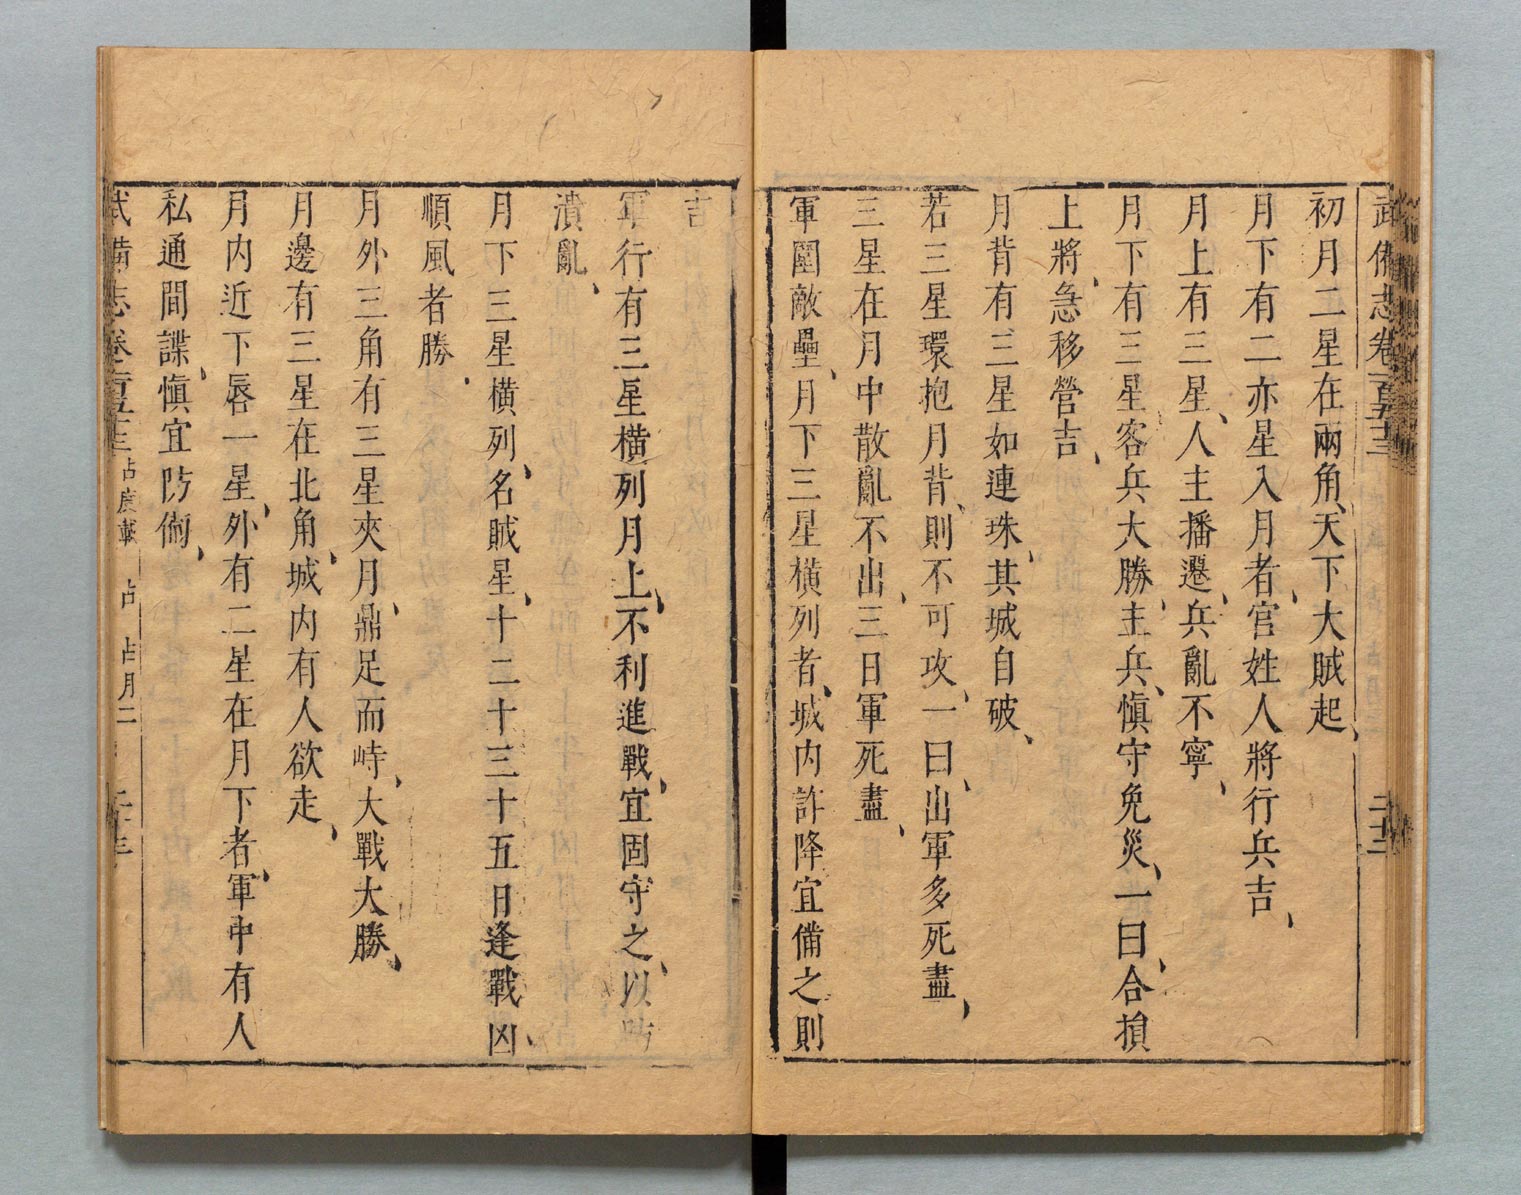 武備志卷一百五十三
二十二
初月二星在兩角、天下大賊起、
月下有二亦星入月者、官姓人將行兵吉、
月上有三星、人主播遷、兵亂不寧、
月下有三星客兵大勝、主兵、愼守免災、一曰、合損
上將、急移營吉、
月背有三星如連珠、其城自破、
若三星環抱月背、則不可攻、一曰、出軍多死盡、
三星在月中散亂不出、三日軍死盡、
軍圍敵壘、月下三星橫列者、城內詐降宜備之則
吉
軍行有三星橫列月上、不利進戰、宜固守之、以防
潰亂、
月下三星橫列、名賊星、十二十三十五日逢戰凶、
順風者勝、
月外三角有三星夾月、鼎足而峙、大戰大勝、
月邊有三星在北角、城内有人欲走、
月内近下唇一星、外有二星在月下者、軍中有人
私通間諜、愼宜防備、
武備志卷一百五十三 占度載 占 占月二